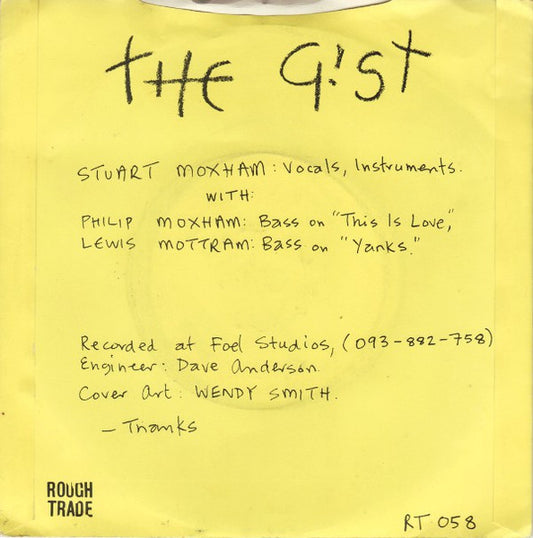 THE G!ST
STUART MOXHAM: Vocals, Instruments.
WITH:
PHILIP MOXHAM: Bass on "This Is Love,"
LEWIS MOTTRAM: Bass on "Yanks."
Recorded at Foel Studios, (093-882-758)
Engineer: Dave Anderson.
Cover Art: WENDY SMITH.
- Thanks
ROUGH
TRADE
RT 058